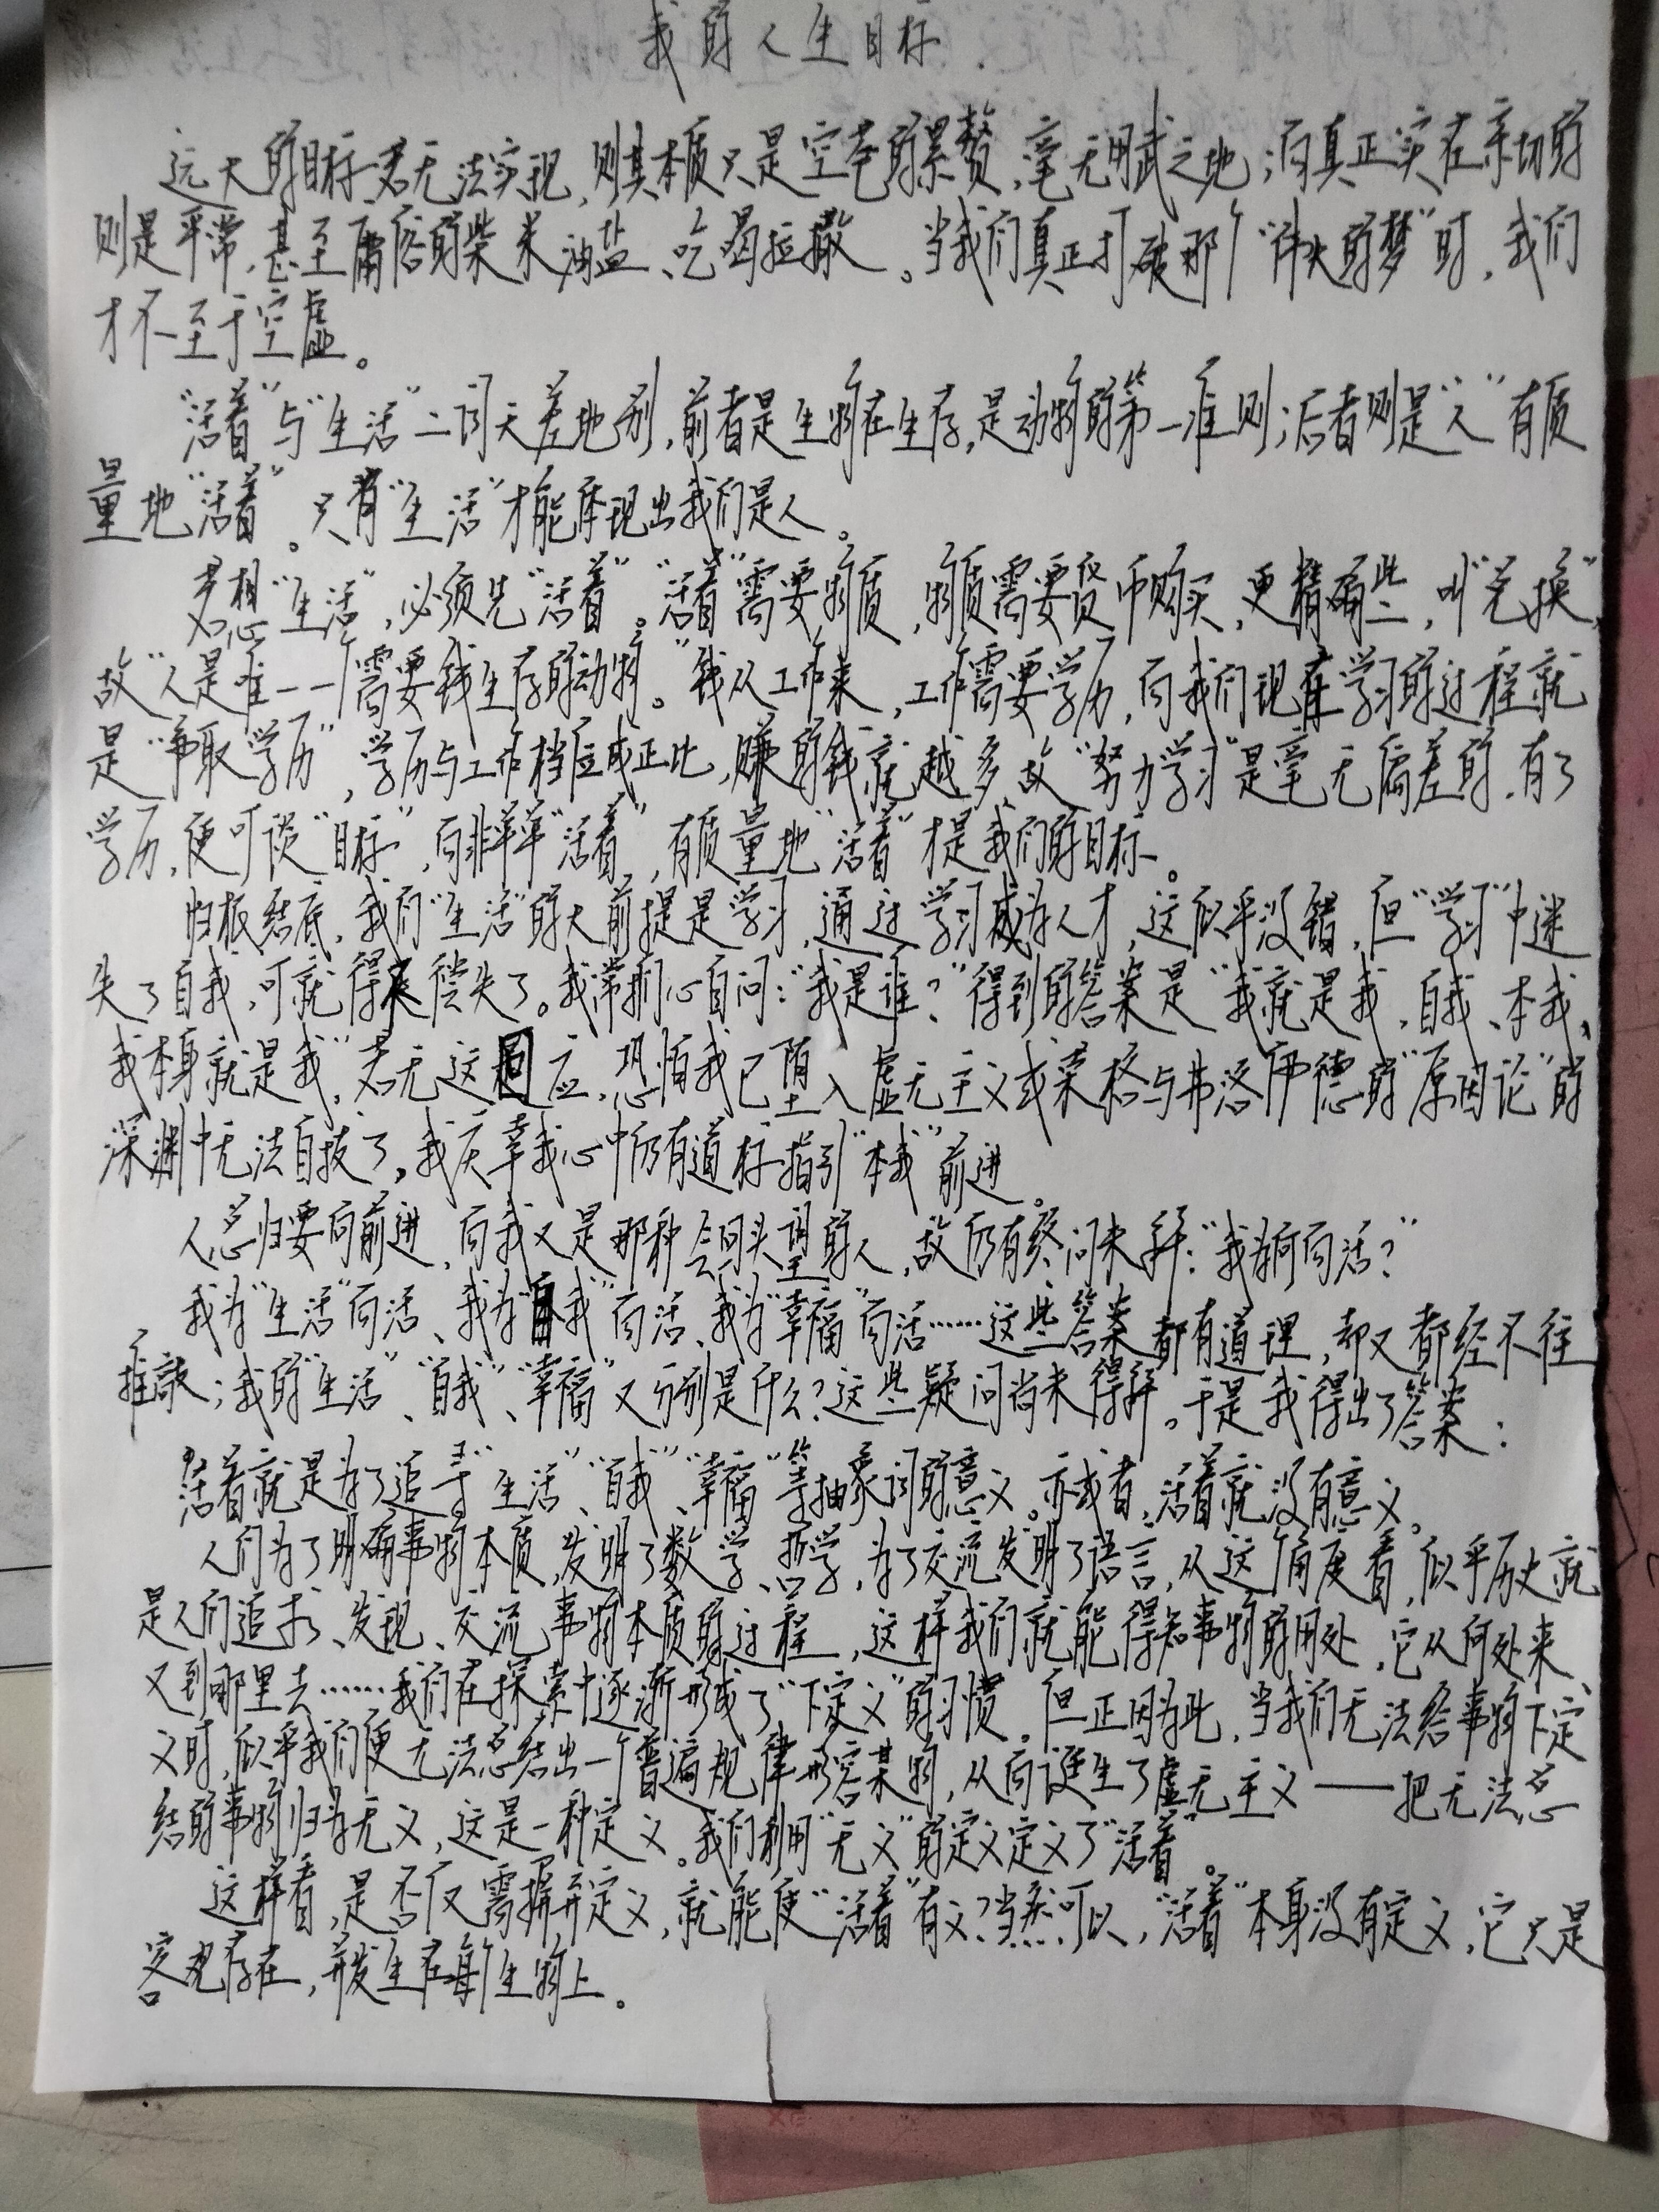 我的人生目标.
远大的目标若无法实现,则其本质只是空苍的累赘,毫无用武之地;而真正实在亲切的
则是平常,甚至庸俗的柴米油盐、吃喝拉撒。当我们真正打破那个“伟大的梦”时,我们
才不至于空虚。
“活着”与“生活”二词天差地别,前者是生物在生存,是动物的第一准则;后者则是“人”有质
量地“活着”。只有“生活”才能体现出我们是人。
若想“生活”,必须先“活着”。“活着”需要物质,物质需要货币购买,更精确些,叫“兑换”,
故“人是唯一一个需要钱生存的动物。”钱从工作来,工作需要学历,而我们现在学习的过程就
是“争取学历”,学历与工作档位成正比,赚的钱就越多,故“努力学习”是毫无偏差的,有了
学历,便可谈“目标”,而非单单“活着”,有质量地“活着”才是我们的目标。
归根结底,我们“生活”的大前提是学习,通过学习成为人才,这似乎没错,但“学习”中迷
失了自我,可就得不偿失了。我常扪心自问:“我是谁?”得到的答案是“我就是我,自我、本我、
我本身就是我”,若无这回应,恐怕我已堕入虚无主义或荣格与弗洛伊德的“原因论”的
深渊中无法自拔了,我庆幸我心中仍有道标指引“本我”前进。
人总归要向前进,而我又是那种会回头望的人,故仍有终问未解:“我为何而活?”
我为“生活”而活、我为“自我”而活、我为“幸福”而活……这些答案都有道理,却又都经不住
推敲;我的“生活”、“自我”、“幸福”又分别是什么?这些疑问尚未得解。于是我得出了答案:
活着就是为了追寻“生活”、“自我”、“幸福”等抽象词的意义。亦或者,活着就没有意义。
人们为了明确事物本质,发明了数学、哲学,为了交流发明了语言,从这个角度看,似乎历史就
是人们追求、发现、交流事物本质的过程,这样我们就能得知事物的用处,它从何处来、
又到哪里去……我们在探索中逐渐形成了“下定义”的习惯。但正因为此,当我们无法给事物下定
义时,似乎我们便无法总结出一个普遍规律形容某物,从而诞生了虚无主义——把无法总
结的事物归为无义,这是一种定义。我们利用“无义”的定义定义了“活着”。
这样看,是否仅需摒弃定义,就能使“活着”有义?当然可以,“活着”本身没有定义,它只是
客观存在,并发生在每个生物上。